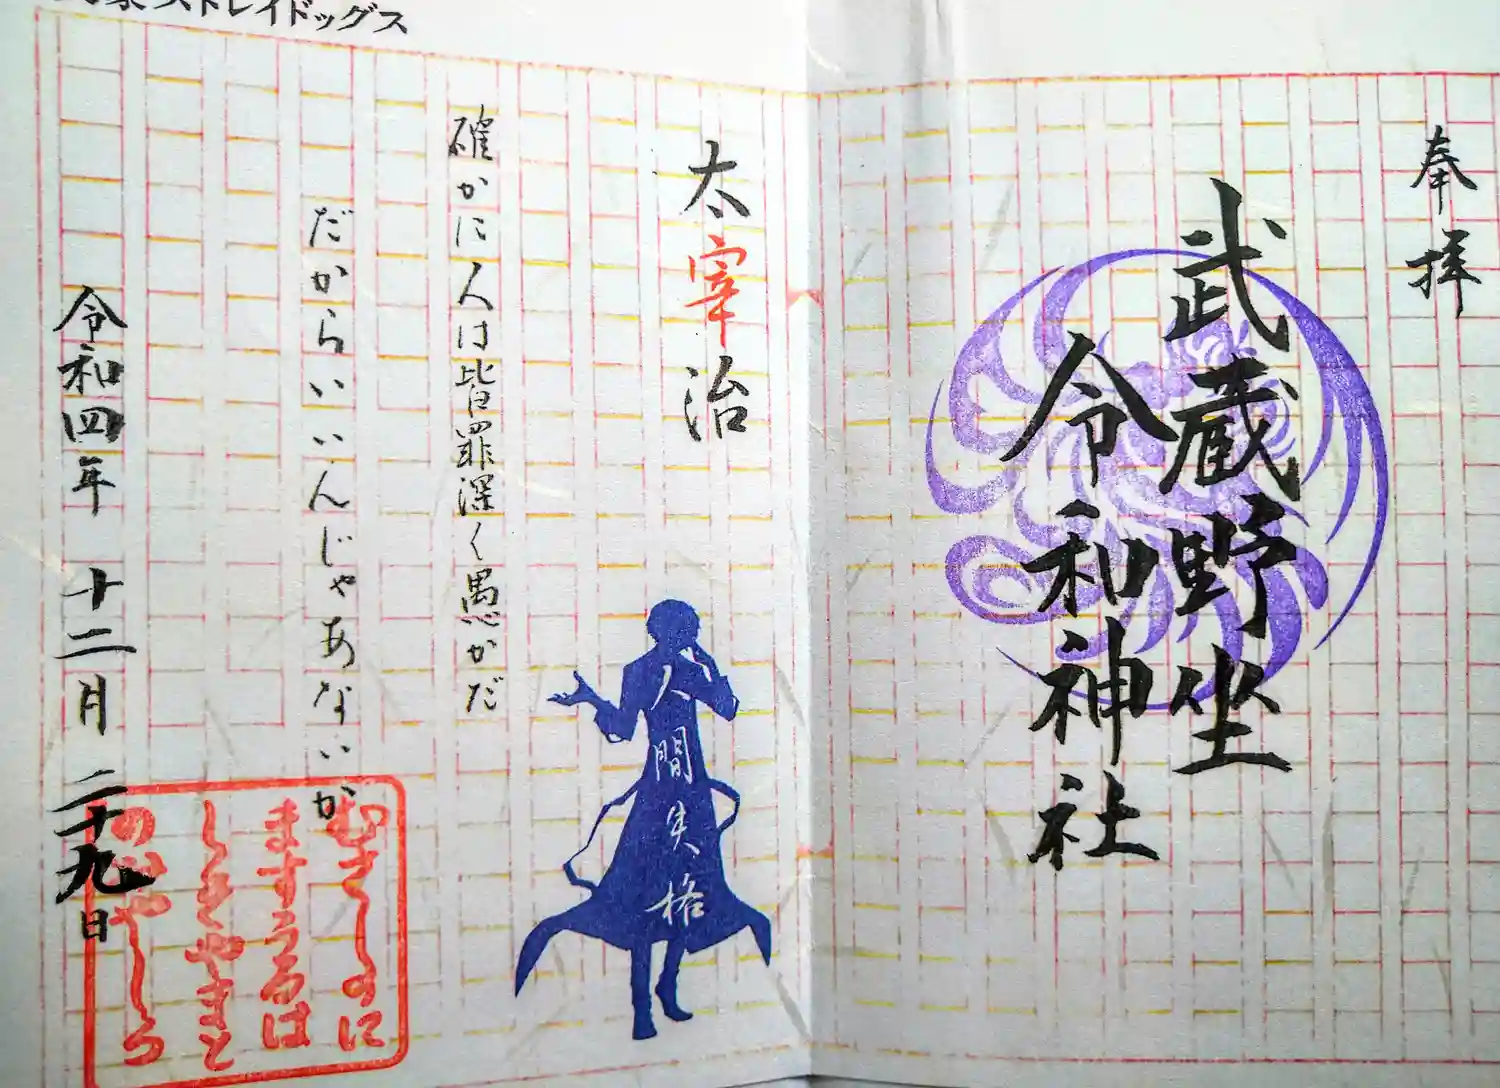 ストレイドッグス
奉拝
武蔵野坐
令和神社
太宰治
人間失格
確かに人は皆罪深く愚かだ
だからいいんじゃあないか
令和四年 十二月 二十九日
むさしのに
ますうるは
しきやまと
のみやしろ